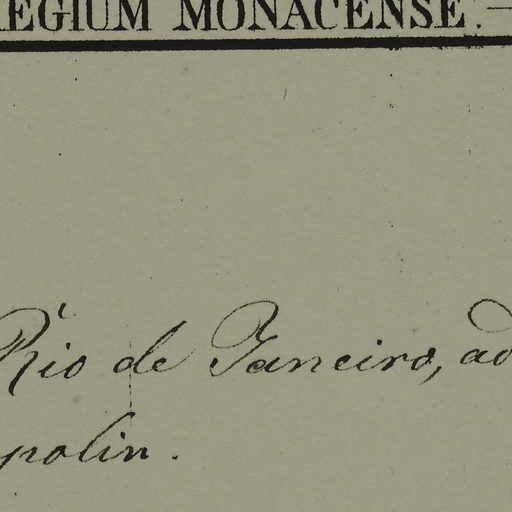 REGIUM MONACENSE.—
Rio de Janeiro, ad
polin.